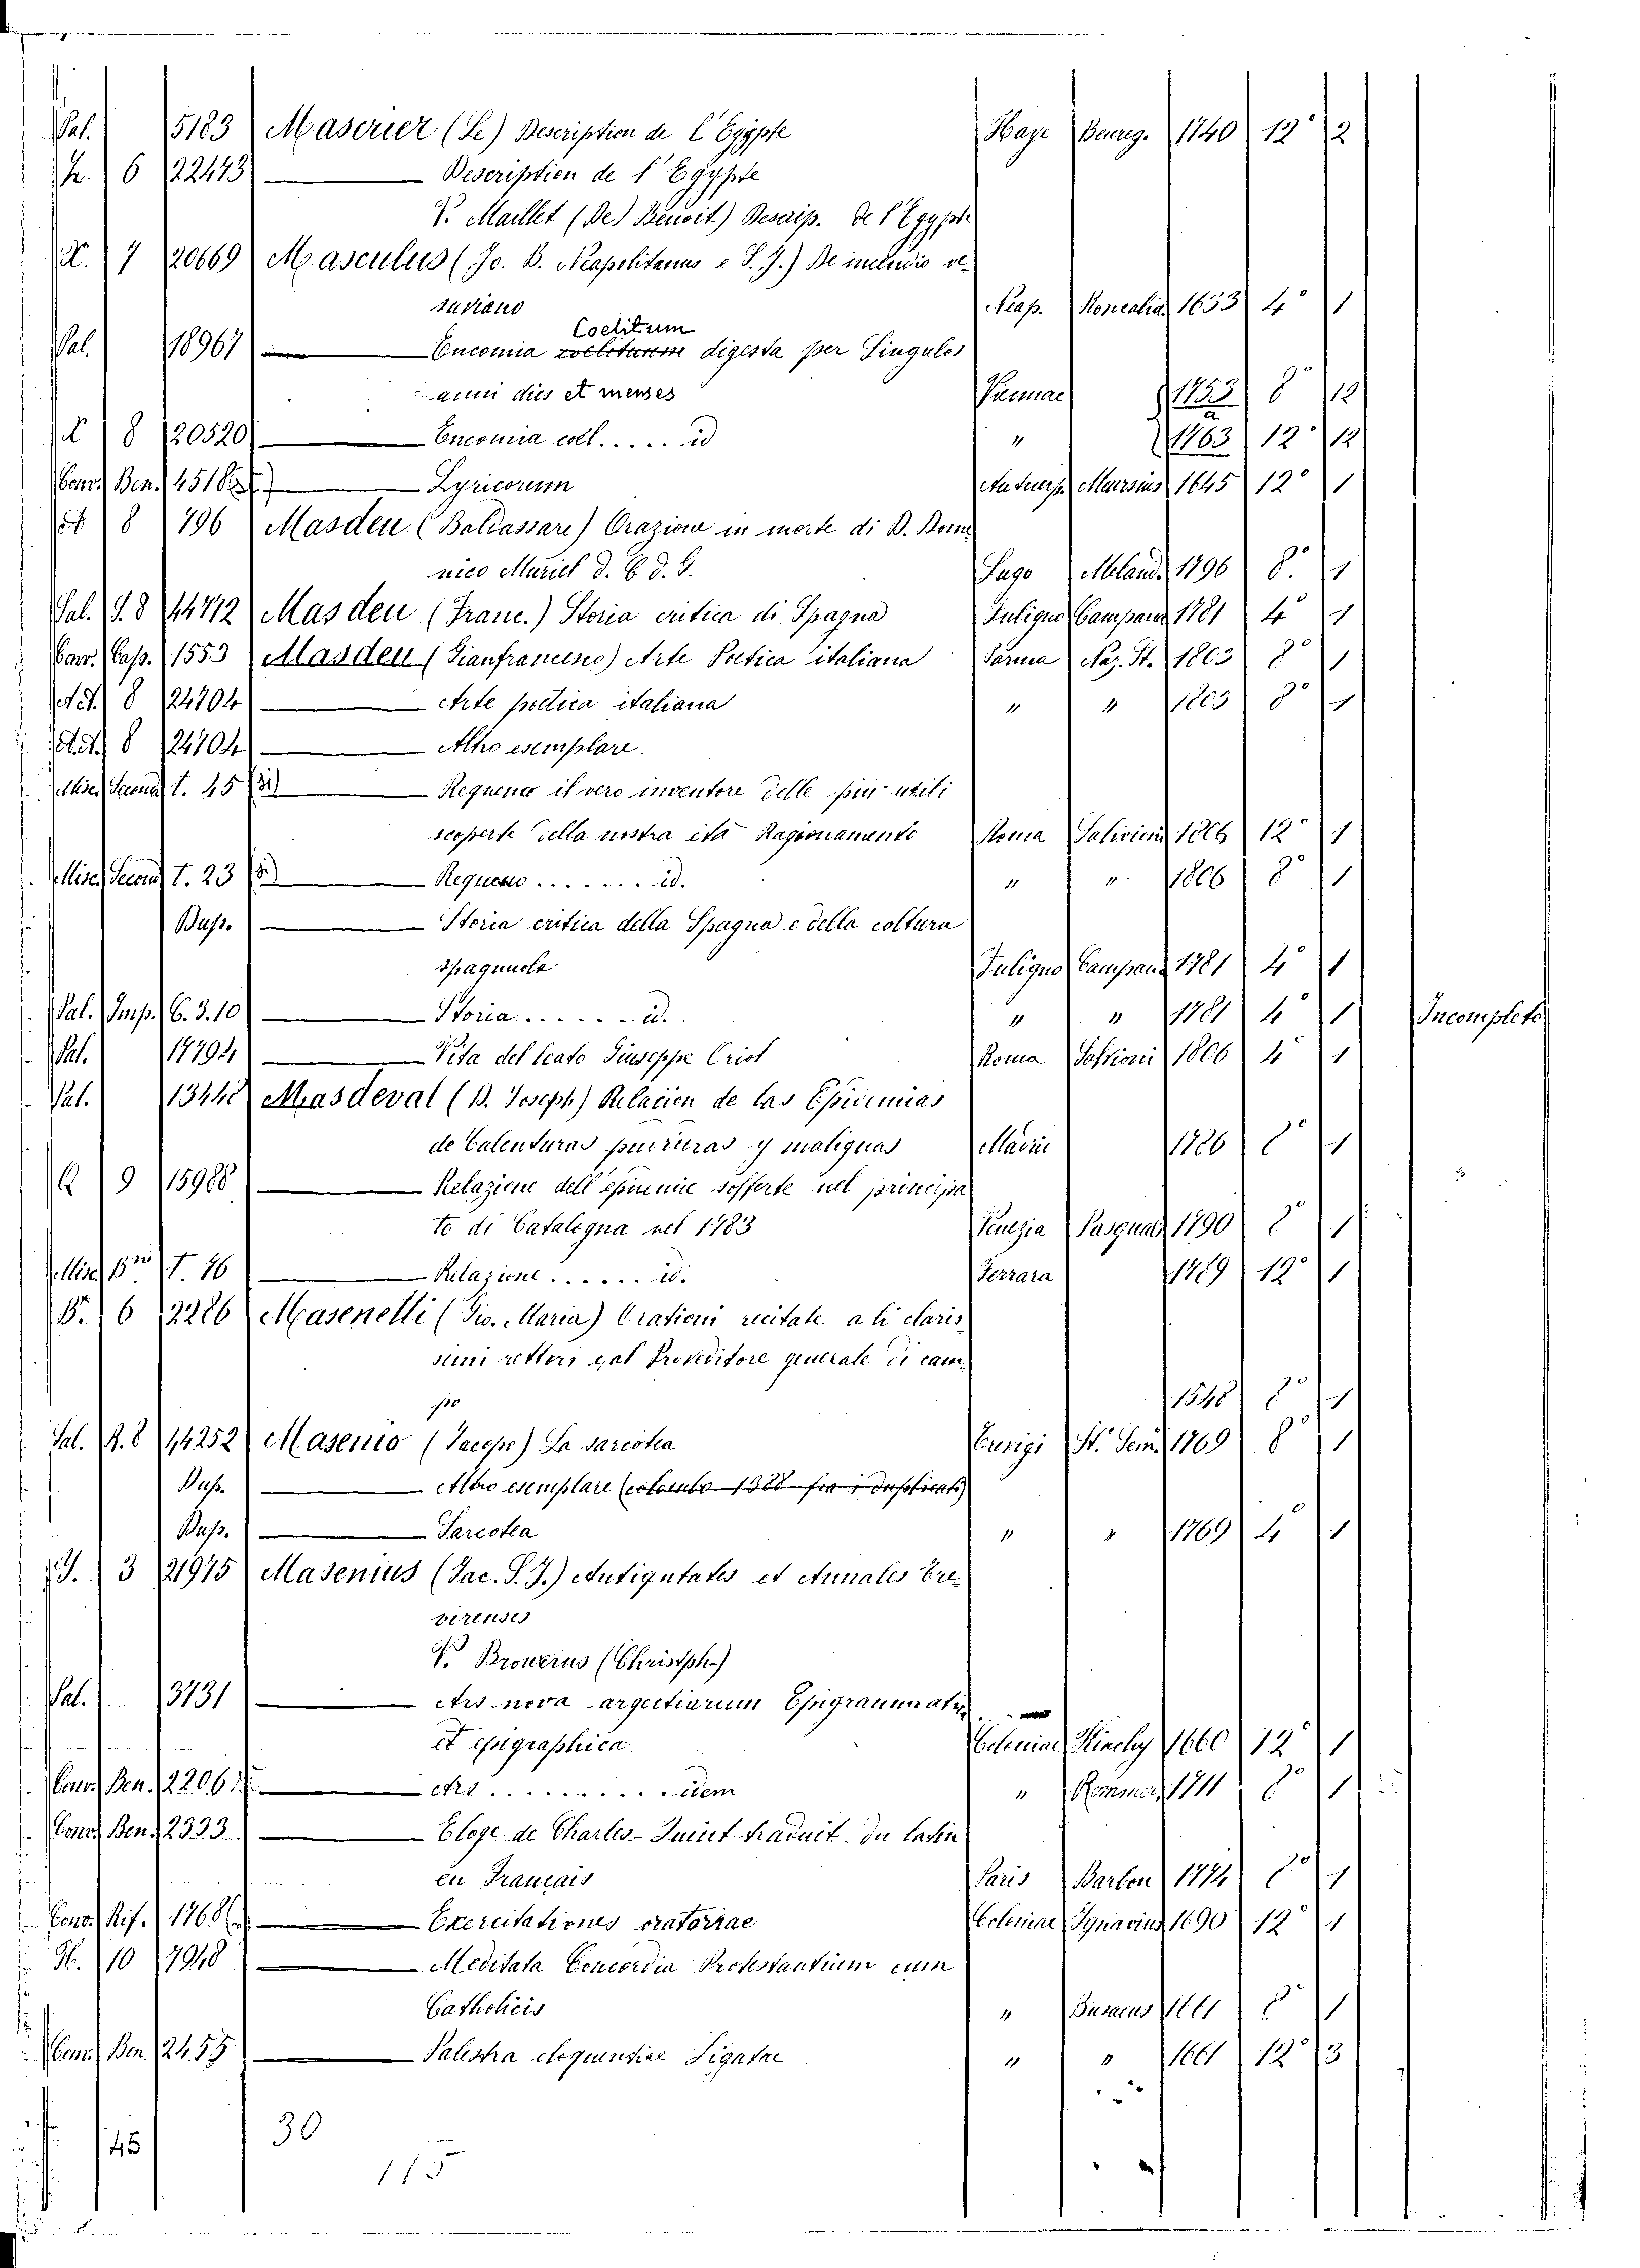 Pal. 5183 Maserier (Le) Description de l'Egypte Haye Beureg. 1740 12° 2
6 22473 Description de l'Egypte
V. Maillet (De) Benoit) Descrip. de l'Egypte
7 20669 Masculus (Jo. B. Neapolitanus e S. J.) De incendio ve-
suviano Neap. Roncalia 1633 4° 1
Coelitum
Pal. 18967 Encomia coelitum digesta per Singulos
anni dies et menses Viennae 1753 8° 12
8 20520 Encomia coel. . . . . id " a 1763 12° 12
Conv. Ben. 4518 Lyricorum Antuerp. Meursius 1645 12° 1
8 796 Masdeu (Baldassare) Orazione in morte di D. Dome
nico Muriel d. C. d. G. Lugo Meland. 1796 8° 1
Pal. 9.8 14712 Masdeu (Franc.) Storia critica di Spagna Fuligno Campana 1781 4° 1
Conv. Cap. 1553 Masdeu (Gianfrancesco) Arte Poetica italiana Parma Naz. St. 1803 8° 1
8 24704 Arte poetica italiana " " 1803 8° 1
8 24704 Altro esemplare.
Misc. Second. t. 45 Requeno il vero inventore delle più utili
scoperte della nostra età Ragionamento Roma Salvioni 1806 12° 1
Misc. Second. T. 23 Requeno . . . . . . . id. " " 1806 8° 1
Dup. Storia critica della Spagna e della coltura
spagnuola Fuligno Campana 1781 4° 1
Pal. Imp. 6.3.10 Storia . . . . . . id. " " 1781 4° 1 Incompleto
Pal. 17794 Vita del beato Giuseppe Oriol Roma Salvioni 1806 4° 1
Pal. 13448 Masdeval (D. Joseph) Relacion de las Epidemias
de Calenturas putridas y malignas Madrid 1786 8° 1
9 15988 Relazione dell'epidemie sofferte nel principa
to di Catalogna nel 1783 Venezia Pasquali 1790 8° 1
Misc. T. 76 Relazione . . . . . . id. Ferrara 1789 12° 1
B. 6 2286 Masenelli (Gio. Maria) Orationi recitate a li claris
simi rettori gal Proveditore generale di cam
po 1548 8° 1
Pal. R.8 14252 Masenio (Jacopo) La sarcotea Parigi St. Gemi 1769 8° 1
Dup. Altro esemplare
Dup. Sarcotea " " 1769 4° 1
J. 3 21975 Masenius (Jac. S. J.) Antiqutates et Annales Tre-
virenses
V. Browerus (Christph.)
Pal. 3731 Ars nova argutiarum Epigrammatis
et epigraphica Coloniae Kinchy 1660 12° 1
Conv. Ben. 2206 Ars . . . . . . . . . . idem " Rommer. 1711 8° 1
Conv. Ben. 2333 Eloge de Charles-Quint traduit du latin
en Francais Paris Barbou 1774 8° 1
Conv. Rif. 1768 Exercitationes oratoriae Coloniae 1690 12° 1
H. 10 7948 Meditata Concordia Protestantium cum
Catholicis " Busaeus 1661 8° 1
Conv. Ben. 2455 Palestra eloquentiae Ligatae " " 1661 12° 3
45 30
115